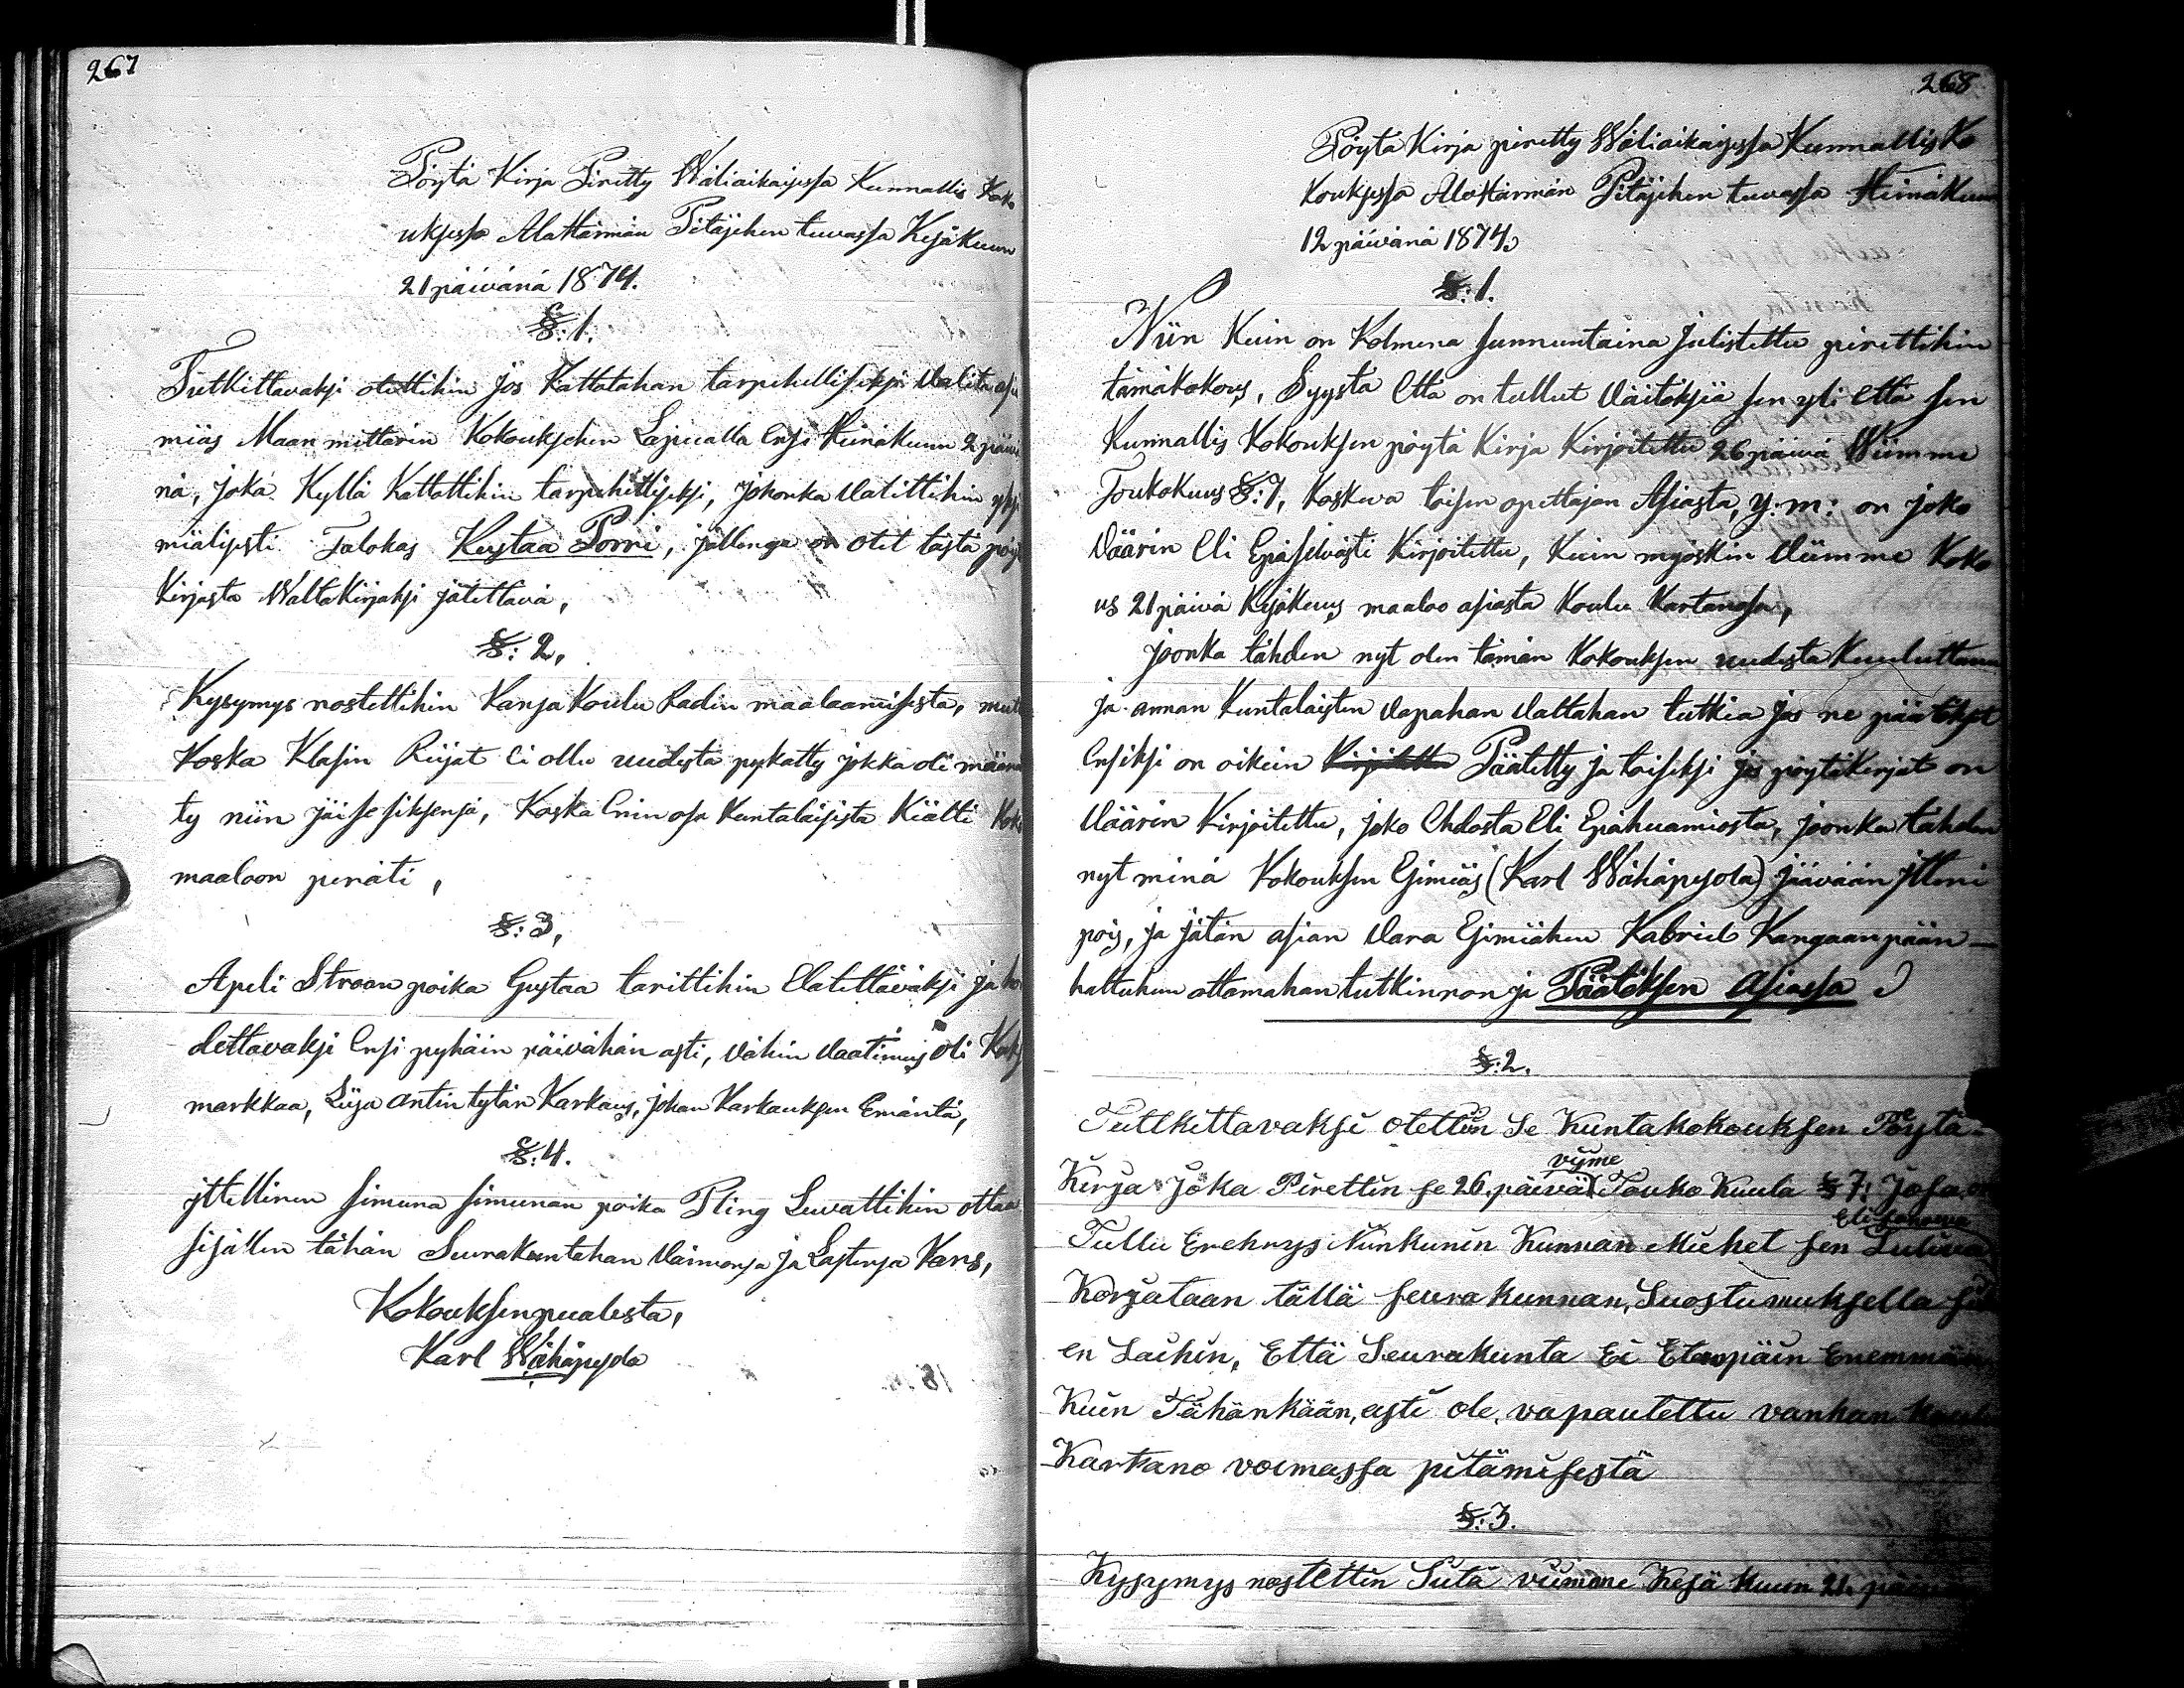 267
Pöytä Kirja Piretty Wäliaikaisessa Kunnallis Koko
uksessa Alahärmän Pitäjehen tuvassa Kesäkuun
21 päivänä 1874.
§: 1.
Tutkittavaksi otettihin jos Kattotahan tarpehelliseksi Valita asia
miäs Maan mittarin Kokouksehen Lapualla Ensi Heinäkuun 2 päivä
nä, joka Kyllä Kattottihin tarpehelliseksi, johonka Valittihin yksi
miälisesti Talokas Kustaa Porri, jällenga on otet tästä pöytä
Kirjasta Waltakirjaksi jätettävä,
§: 2,
Kysymys nostettihin Kansa koulu Radin maalaamisesta, mutta
Koska Klasin Riijat Ei ollu uudesta pykatty jokka oli määrät
ty niin jäi se siksensä, Koska Enin osa Kuntalaisista Kiälti Koko
maaloon peräti,
§: 3,
Apeli Stroan poika Gustaa tarittihin Elatettäväksi ja ho
dettavaksi Ensi pyhäin päivähän asti, Vähin Vaatimus oli
markkaa, Liisa Antin tytär Karkaus, Johan Karkauksen Emäntä,
§: 4.
ittellinen Simuna Simunan poika Pling Luvattihin ottaa
sisällen tähän Seurakuntahan Vaimonsa ja Lastensa Kans,
Kokouksen puolesta,
Karl Wähäpesola
268
Pöytä Kirja piretty Wäliaikaisessa Kunnallis Ko
kouksessa Alahärmän Pitäjehen tuvassa Heinäkuun
12 päivänä 1874.
§: 1.
Niin Kuin on Kolmena Sunnuntaina Julistettu pirettihin
tämäkokous, Syystä Että on tullut Väitöksiä sen yli Että sen
Kunnallis Kokouksen pöytä Kirja Kirjoitettu 26 päivä Wiimme
Toukokuus §: 7, Koskeva toisen opettajan Asiasta, y: m: on joko
Väärin Eli Epäselvästi Kirjoitettu, Kuin myöskin Viimme Koko
us 21 päivä Kesäkuus maaloo asiasta Koulu Kartanosa,
joonka tähden nyt olen tämän Kokouksen uudesta Kuuluttanu
ja annan Kuntalaisten Vapahan Valtahan tutkia jos ne päätökset
Ensiksi on oikein Kirjoitettu Päätetty ja toiseksi jos pöytäkirjat on
Väärin Kirjoitettu, joko Ehdosta Eli Epähuamiosta, joonka tähden
nyt minä Kokouksen Esimiäs (Karl Wähäpesola) jäävään itteni
pois, ja jätän asian Vara Esimiähen Kabriel Kangaanpään
haltuhun ottamahan tutkinnon ja Päätöksen Asiassa
§: 2.
Tuttkittavaksi otettiin Se Kuntakokouksen Pöytä-
Kirja Joka Pirettin se 26. päivä viime Touko Kuula § 7: Josa on
Tullu Erehnys Niinkuin Kunnan Miehet sen Luliva
Korjataan tällä seurakunnan Suostumuksella
en Laihin, Että Seurakunta Ei Etenpäin Enemmän
Kuin Tähänkään, asti ole, vapautettu vanhan Koulu
Kartano voimassa pitämisestä
§: 3.
Kysymys nostettin Siitä viimone Kesä Kuun 21.